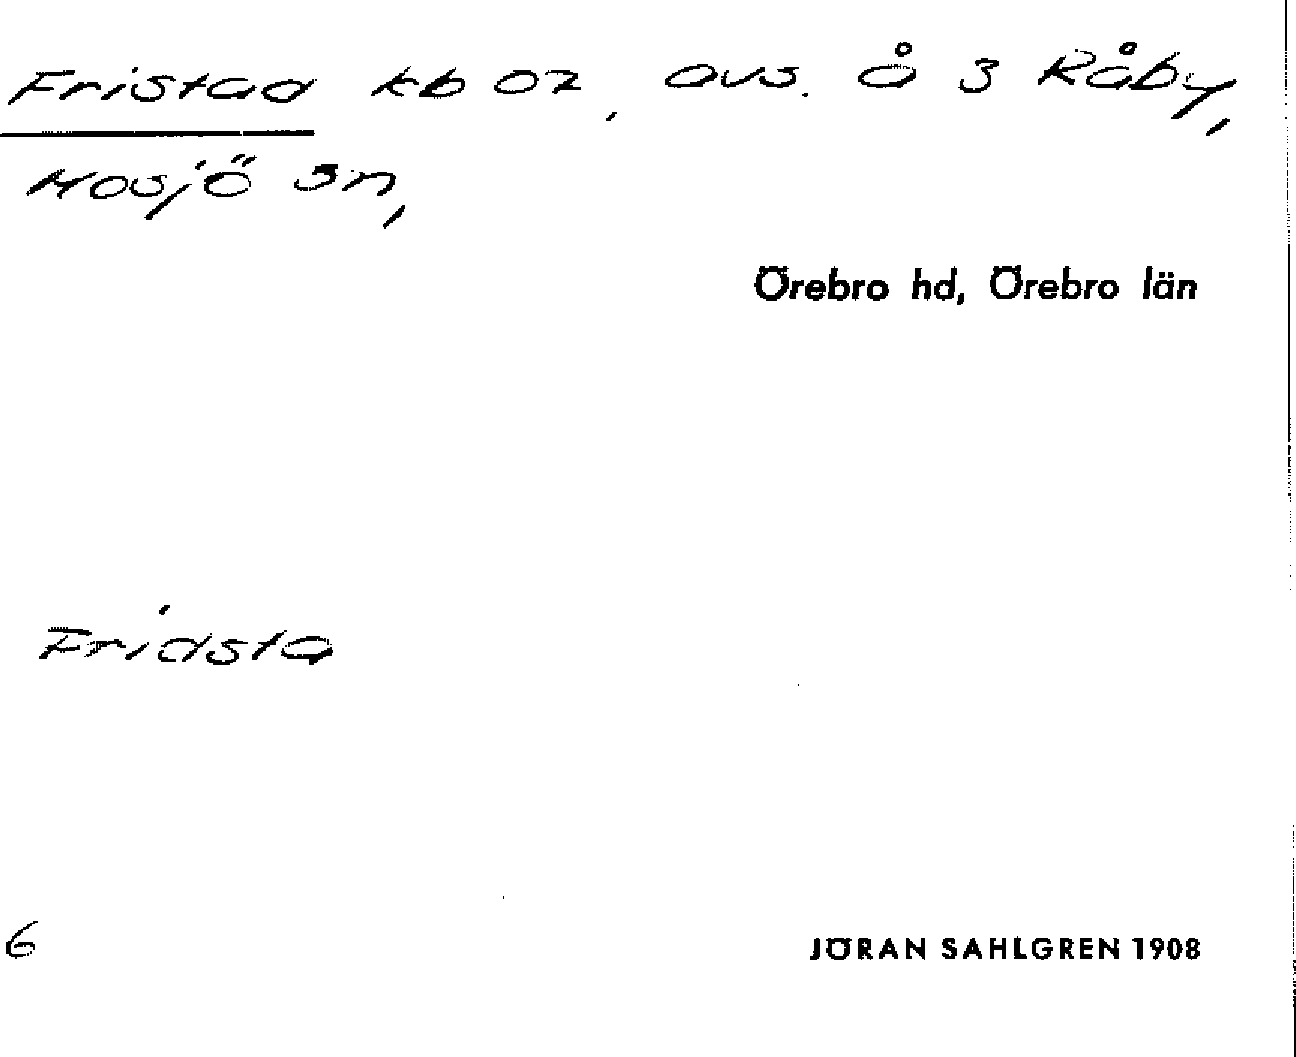 Fristad kb 02, avs. å 3 Råby,
Mosjö sn,
Örebro hd, Örebro län
Fridsta
6
JÖRAN SAHLGREN 1908